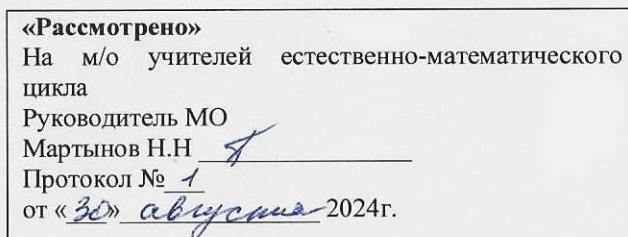 «Рассмотрено»
На м/о учителей естественно-математического
цикла
Руководитель МО
Мартынов Н.Н
Протокол № 1
от «30» августа 2024г.